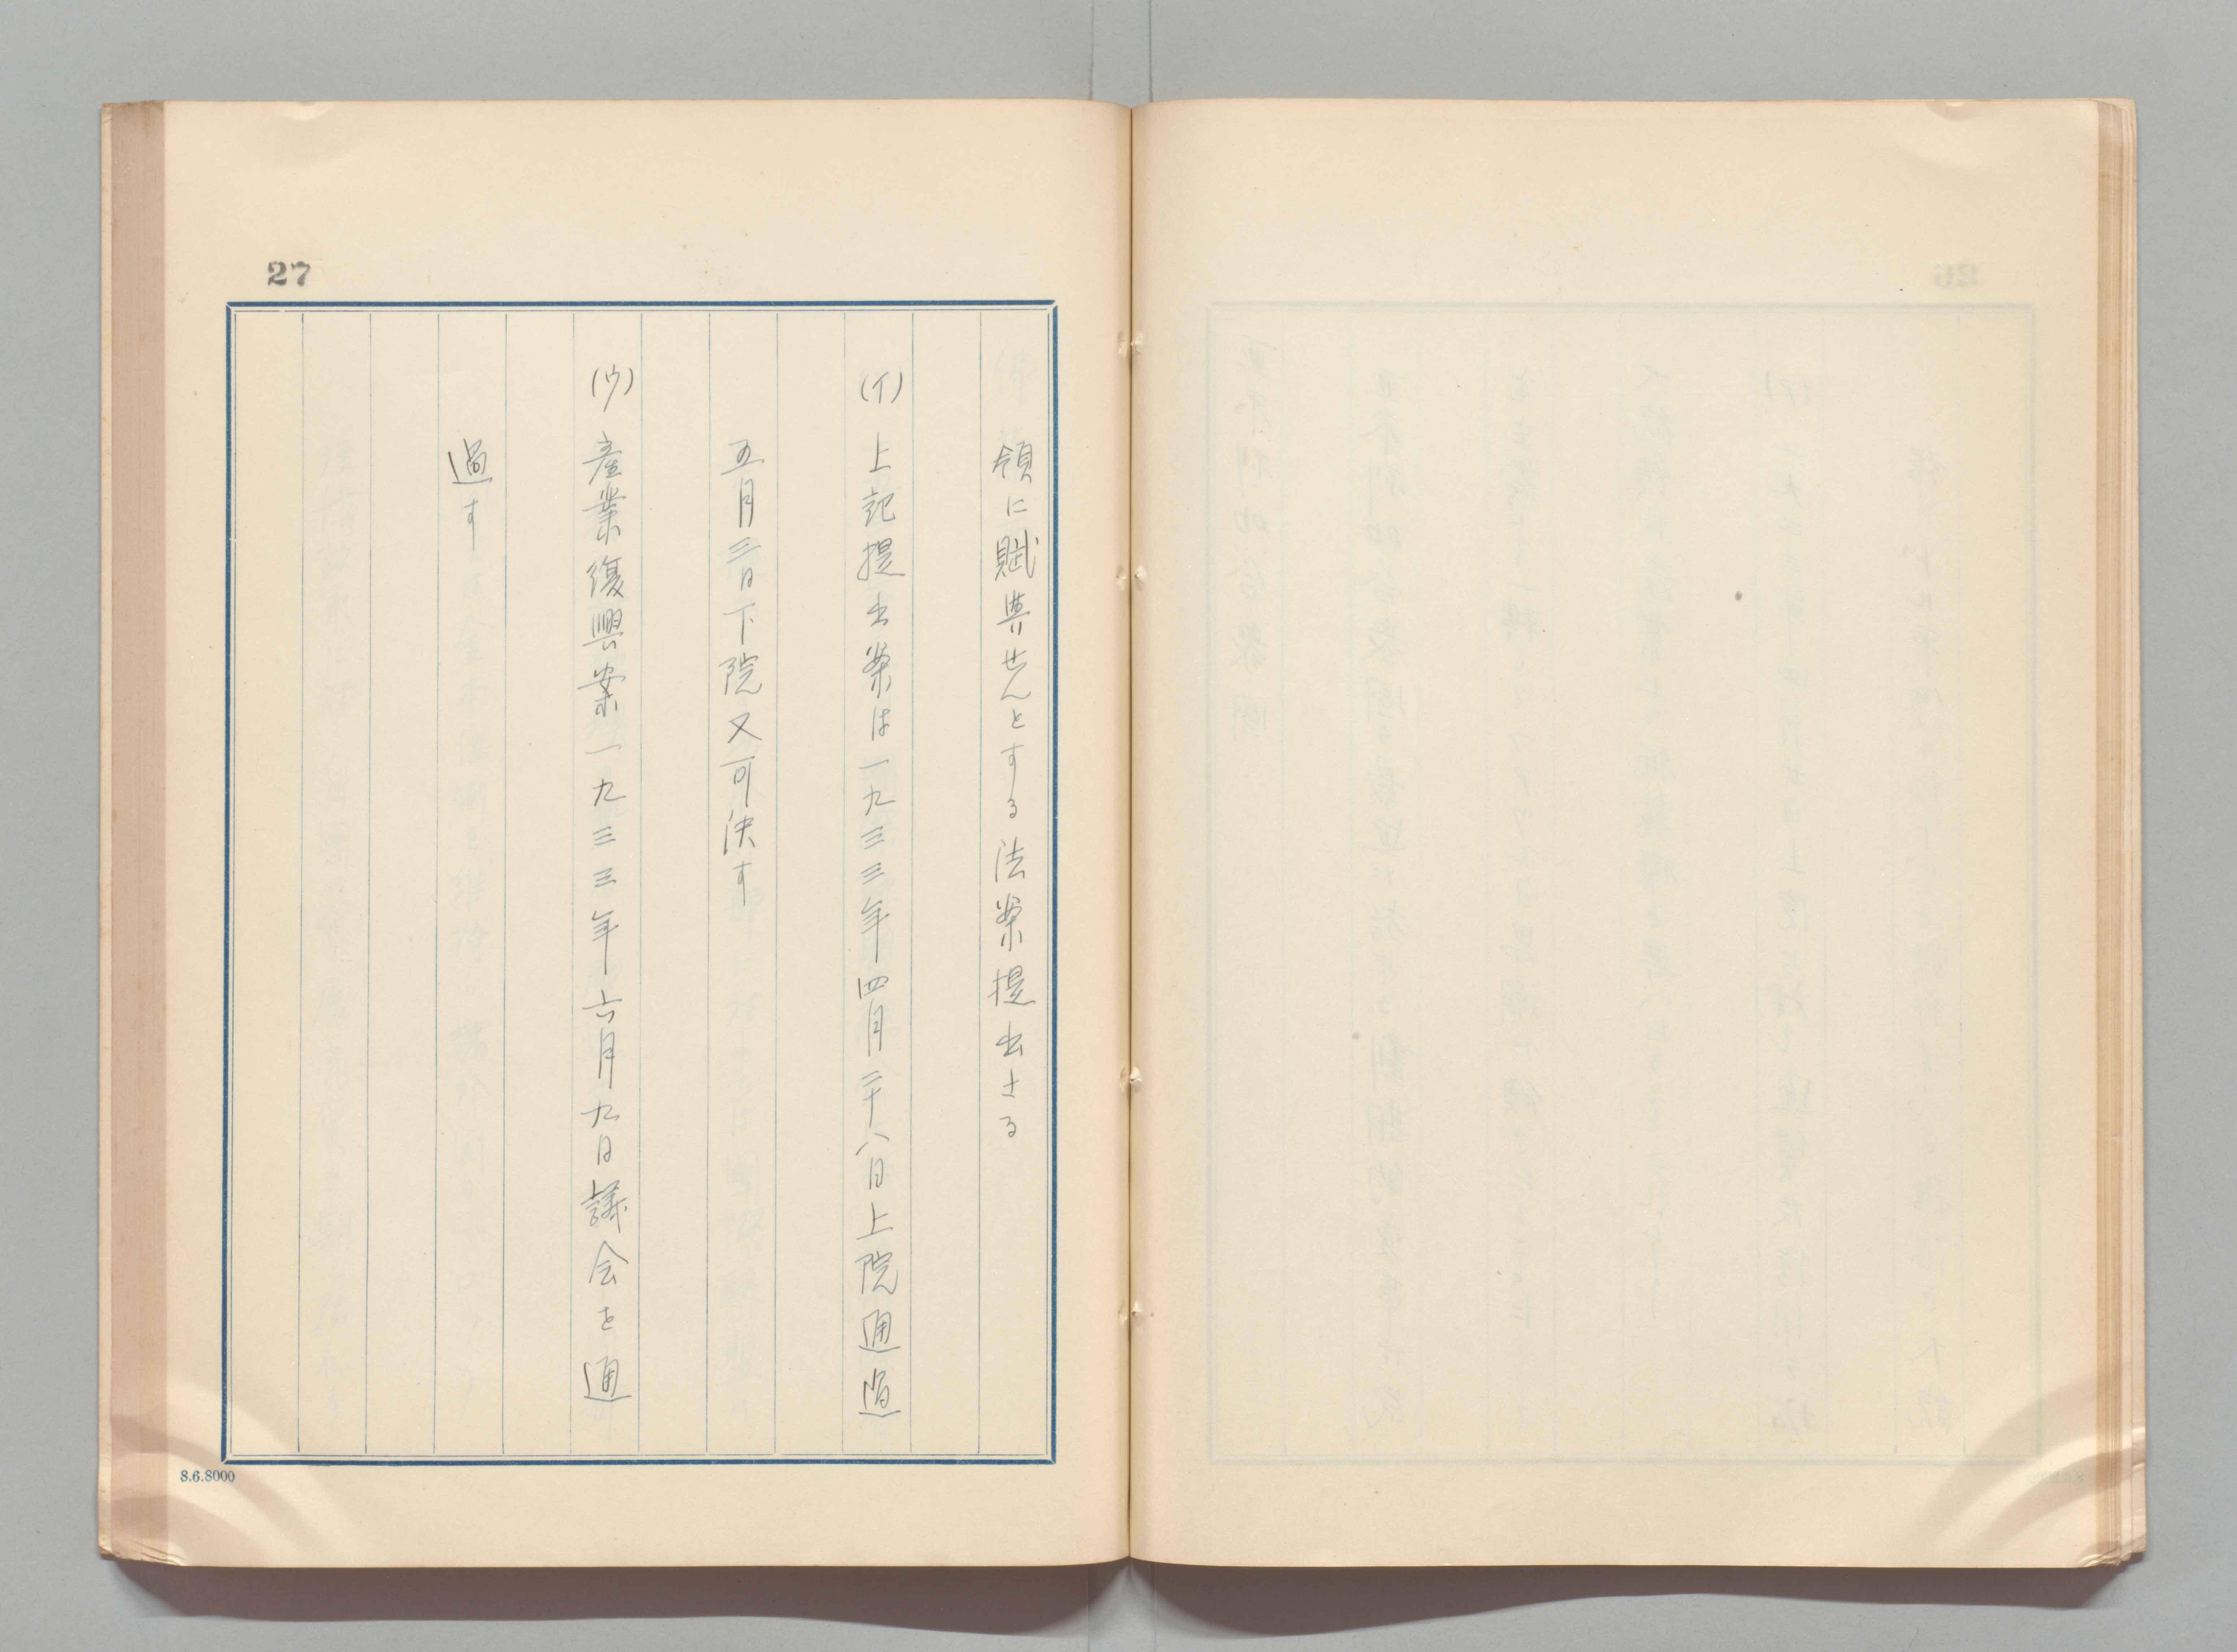 27
領に賦與せんとする法案提出さる
(イ) 上記提出案は一九三三年四月二十八日上院通過
五月三日下院又可決す
(ウ) 産業復興案一九三三年六月九日議会を通
過す
8.6.8000